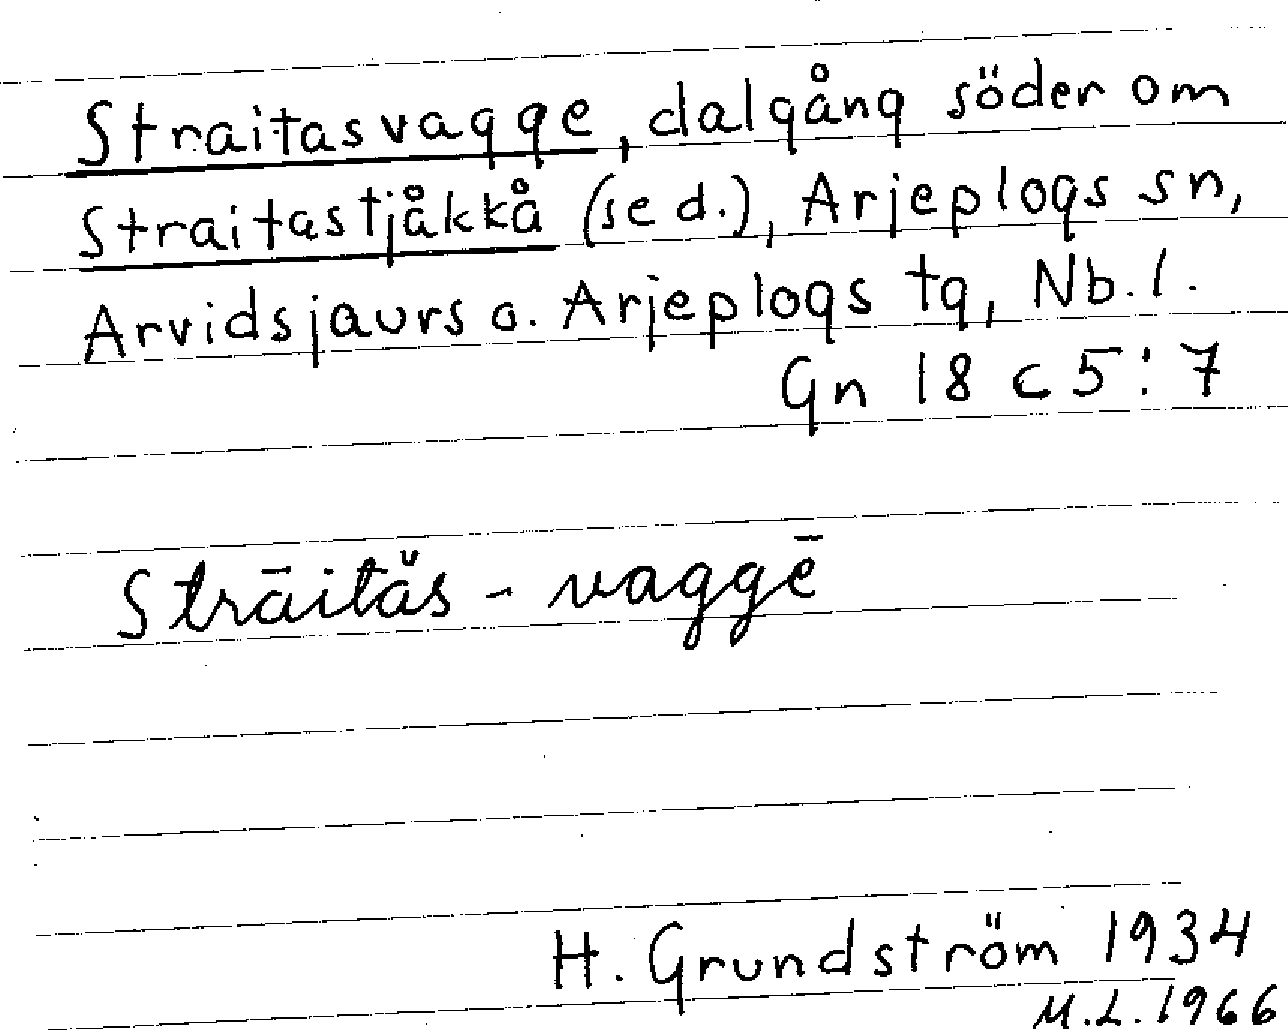 Straitasvagge, dalgång söder om
Straitastjåkkå (se d.), Arjeplogs sn,
Arvidsjaurs o. Arjeplogs tg, Nb. l.
Gn 18 c 5:7
Strāităs - vaggē
H. Grundström 1934
M.L. 1966